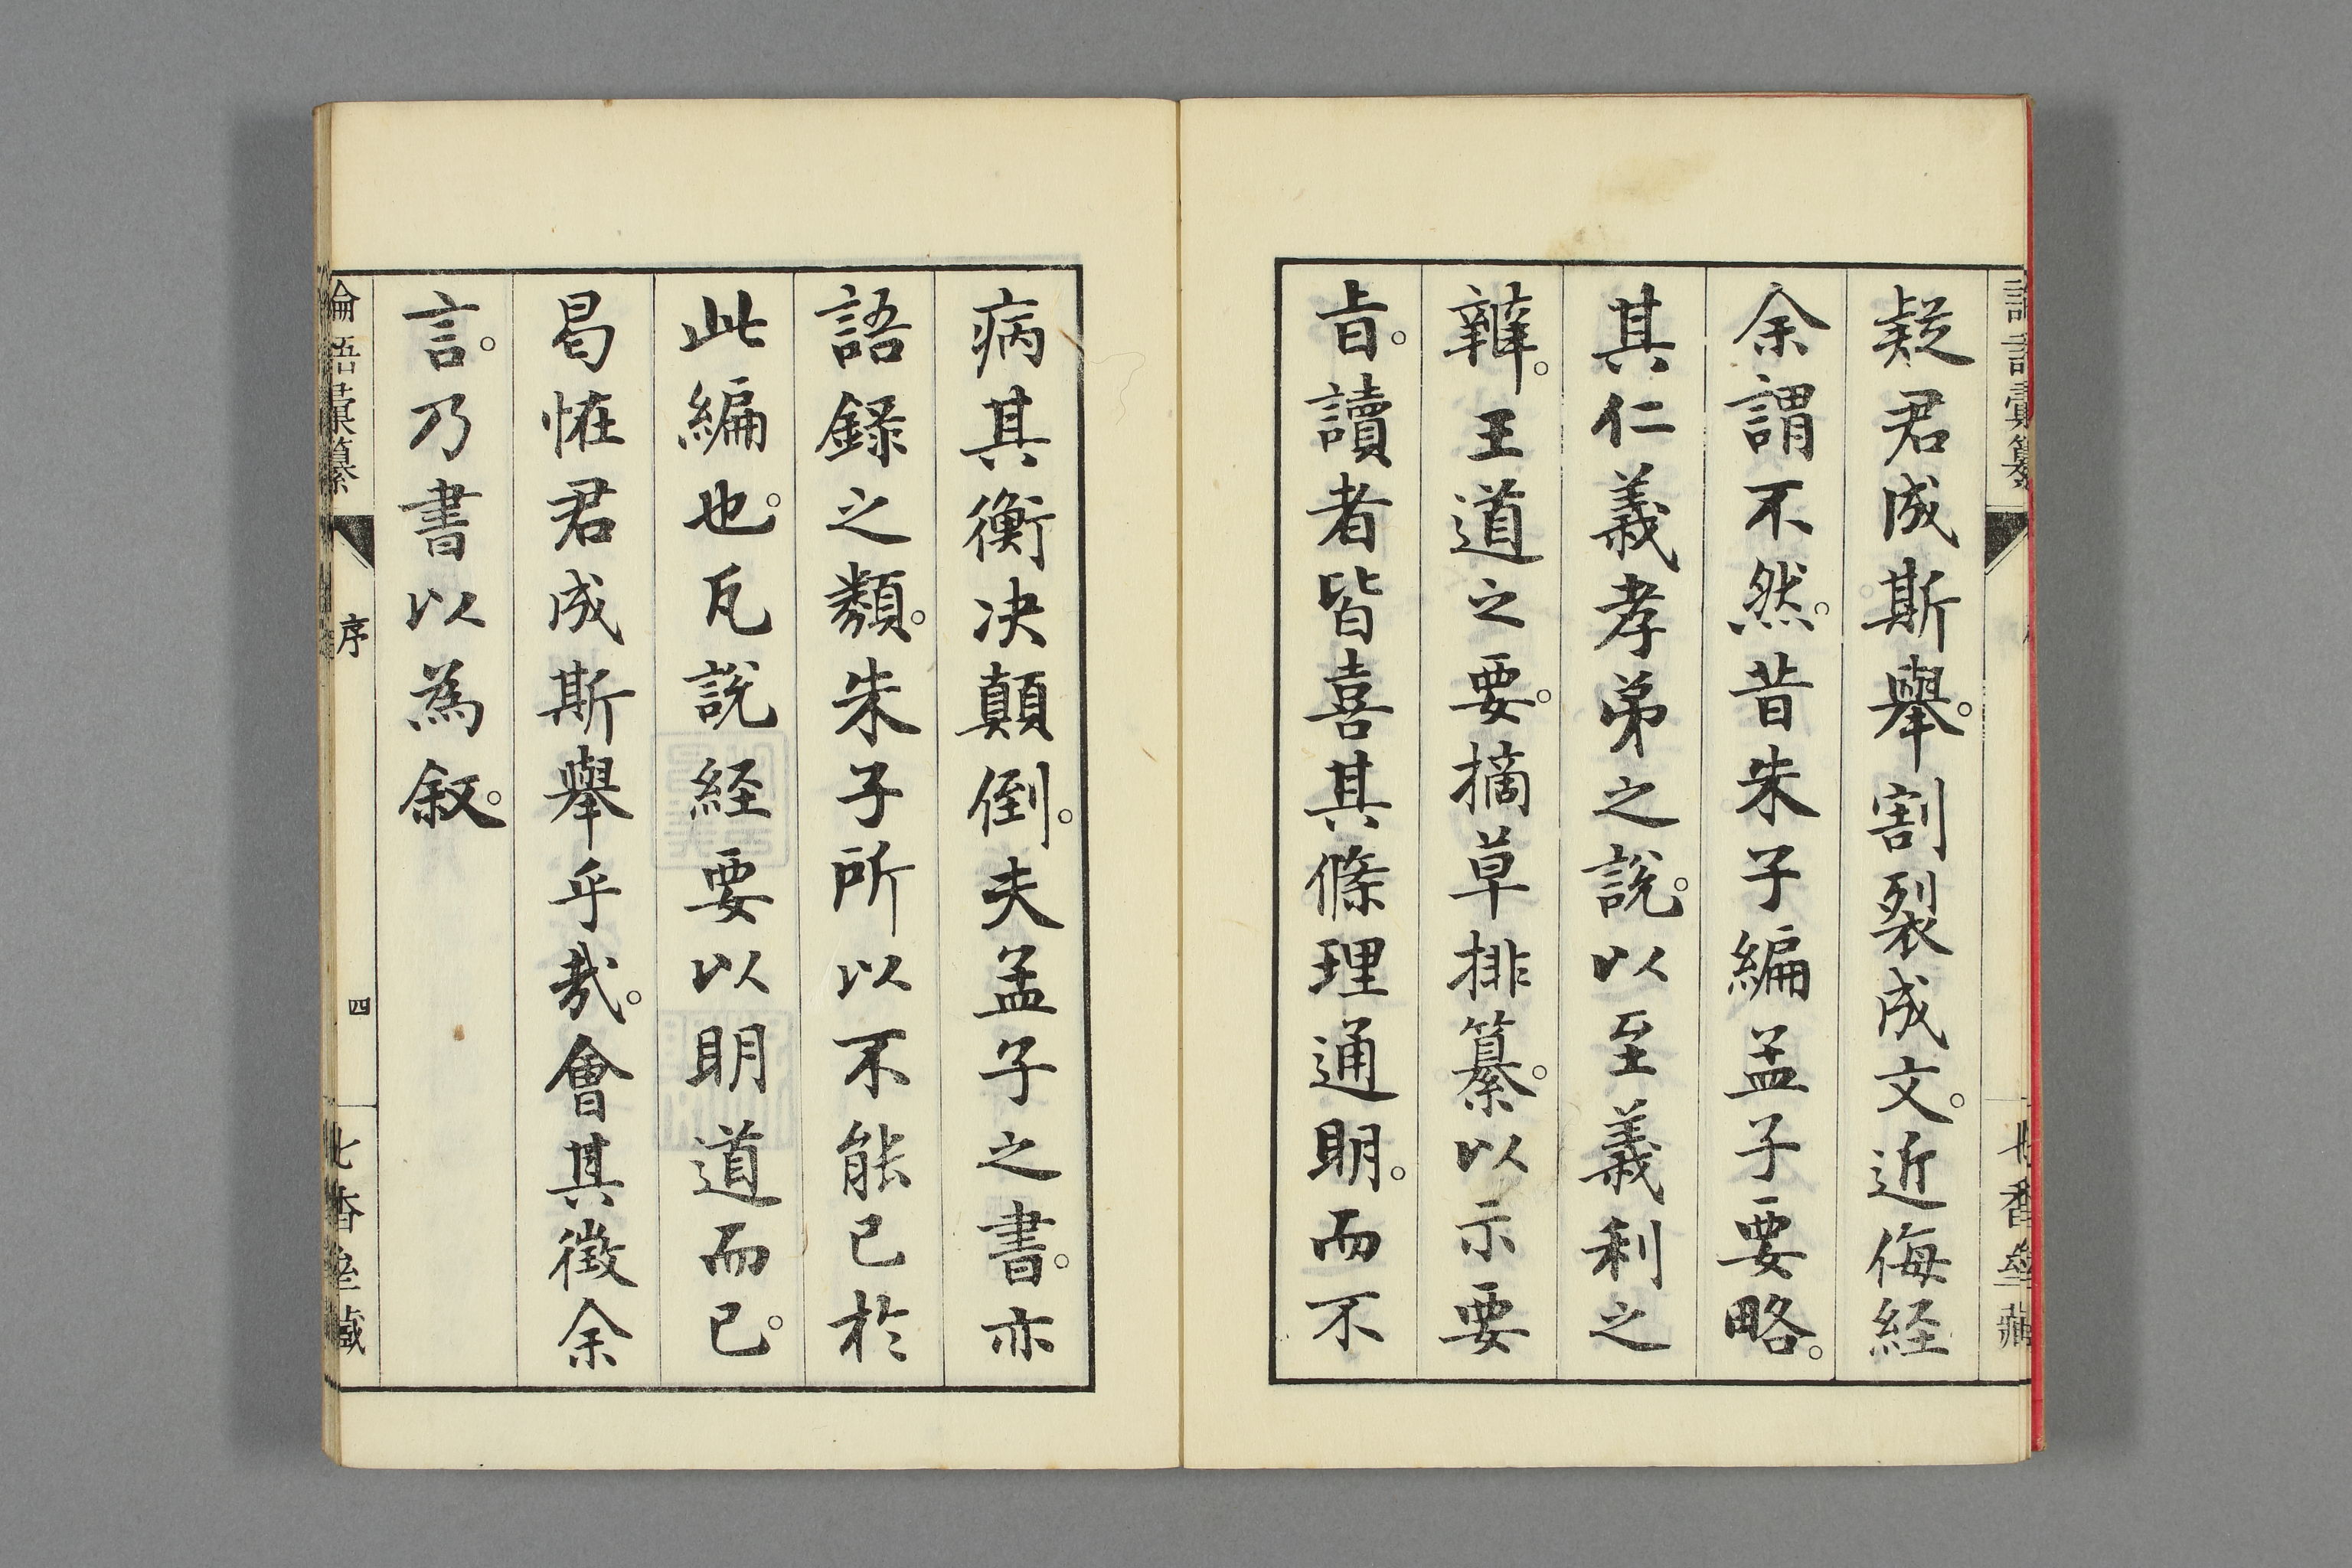 疑君成斯舉。割裂成文。近侮経
余謂不然。昔朱子編孟子要略。
其仁義孝弟之說。以至義利之
辨。王道之要。摘草排纂。以示要
旨。讀者皆喜其條理通明。而不
病其衡决顛倒。夫孟子之書。亦
語録之類。朱子所以不能已於
此編也。凡說経要以明道而已。
曷怪君成斯舉乎哉。會其徵余
言。乃書以為叙。
論語彙纂
序
四
七香齋藏